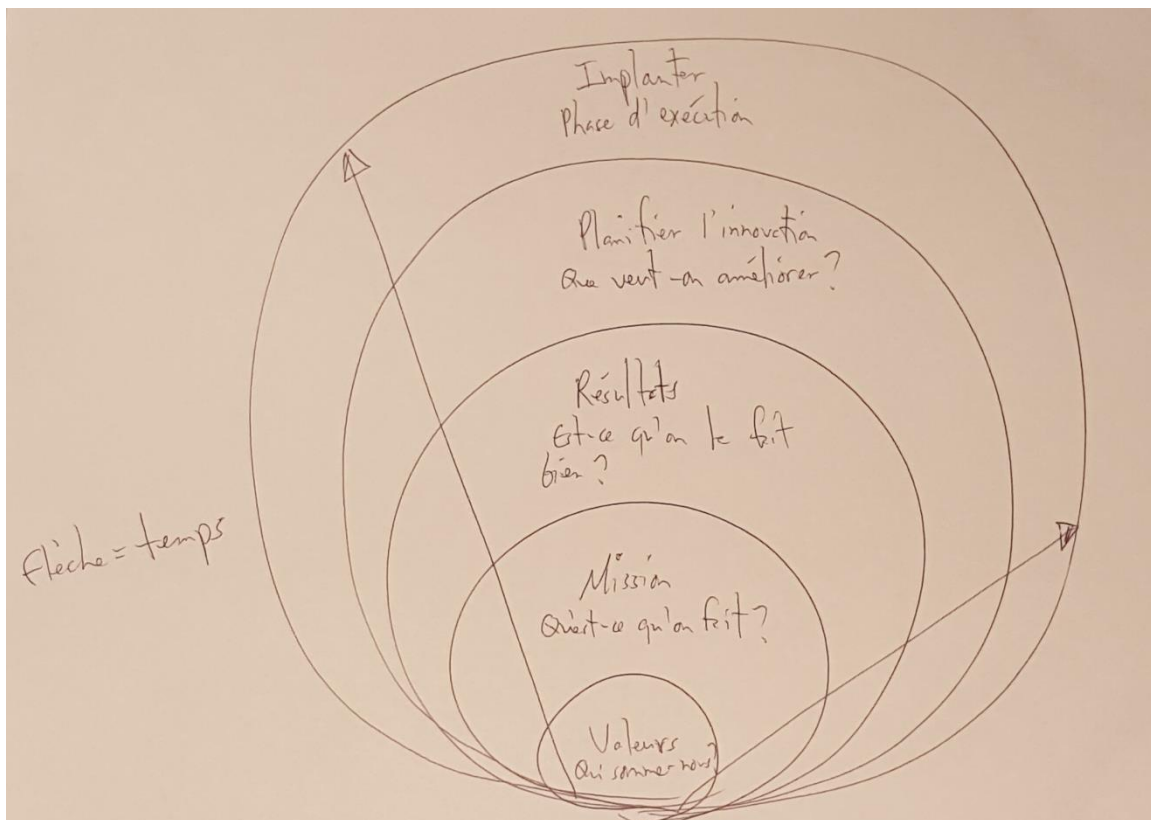 Implanter
Phase d'exécution
Planifier l'innovation
Que veut-on améliorer?
Résultats
Est-ce qu'on le fait
bien?
flèche = temps
Mission
Qu'est-ce qu'on fait?
Valeurs
Qui sommes nous?